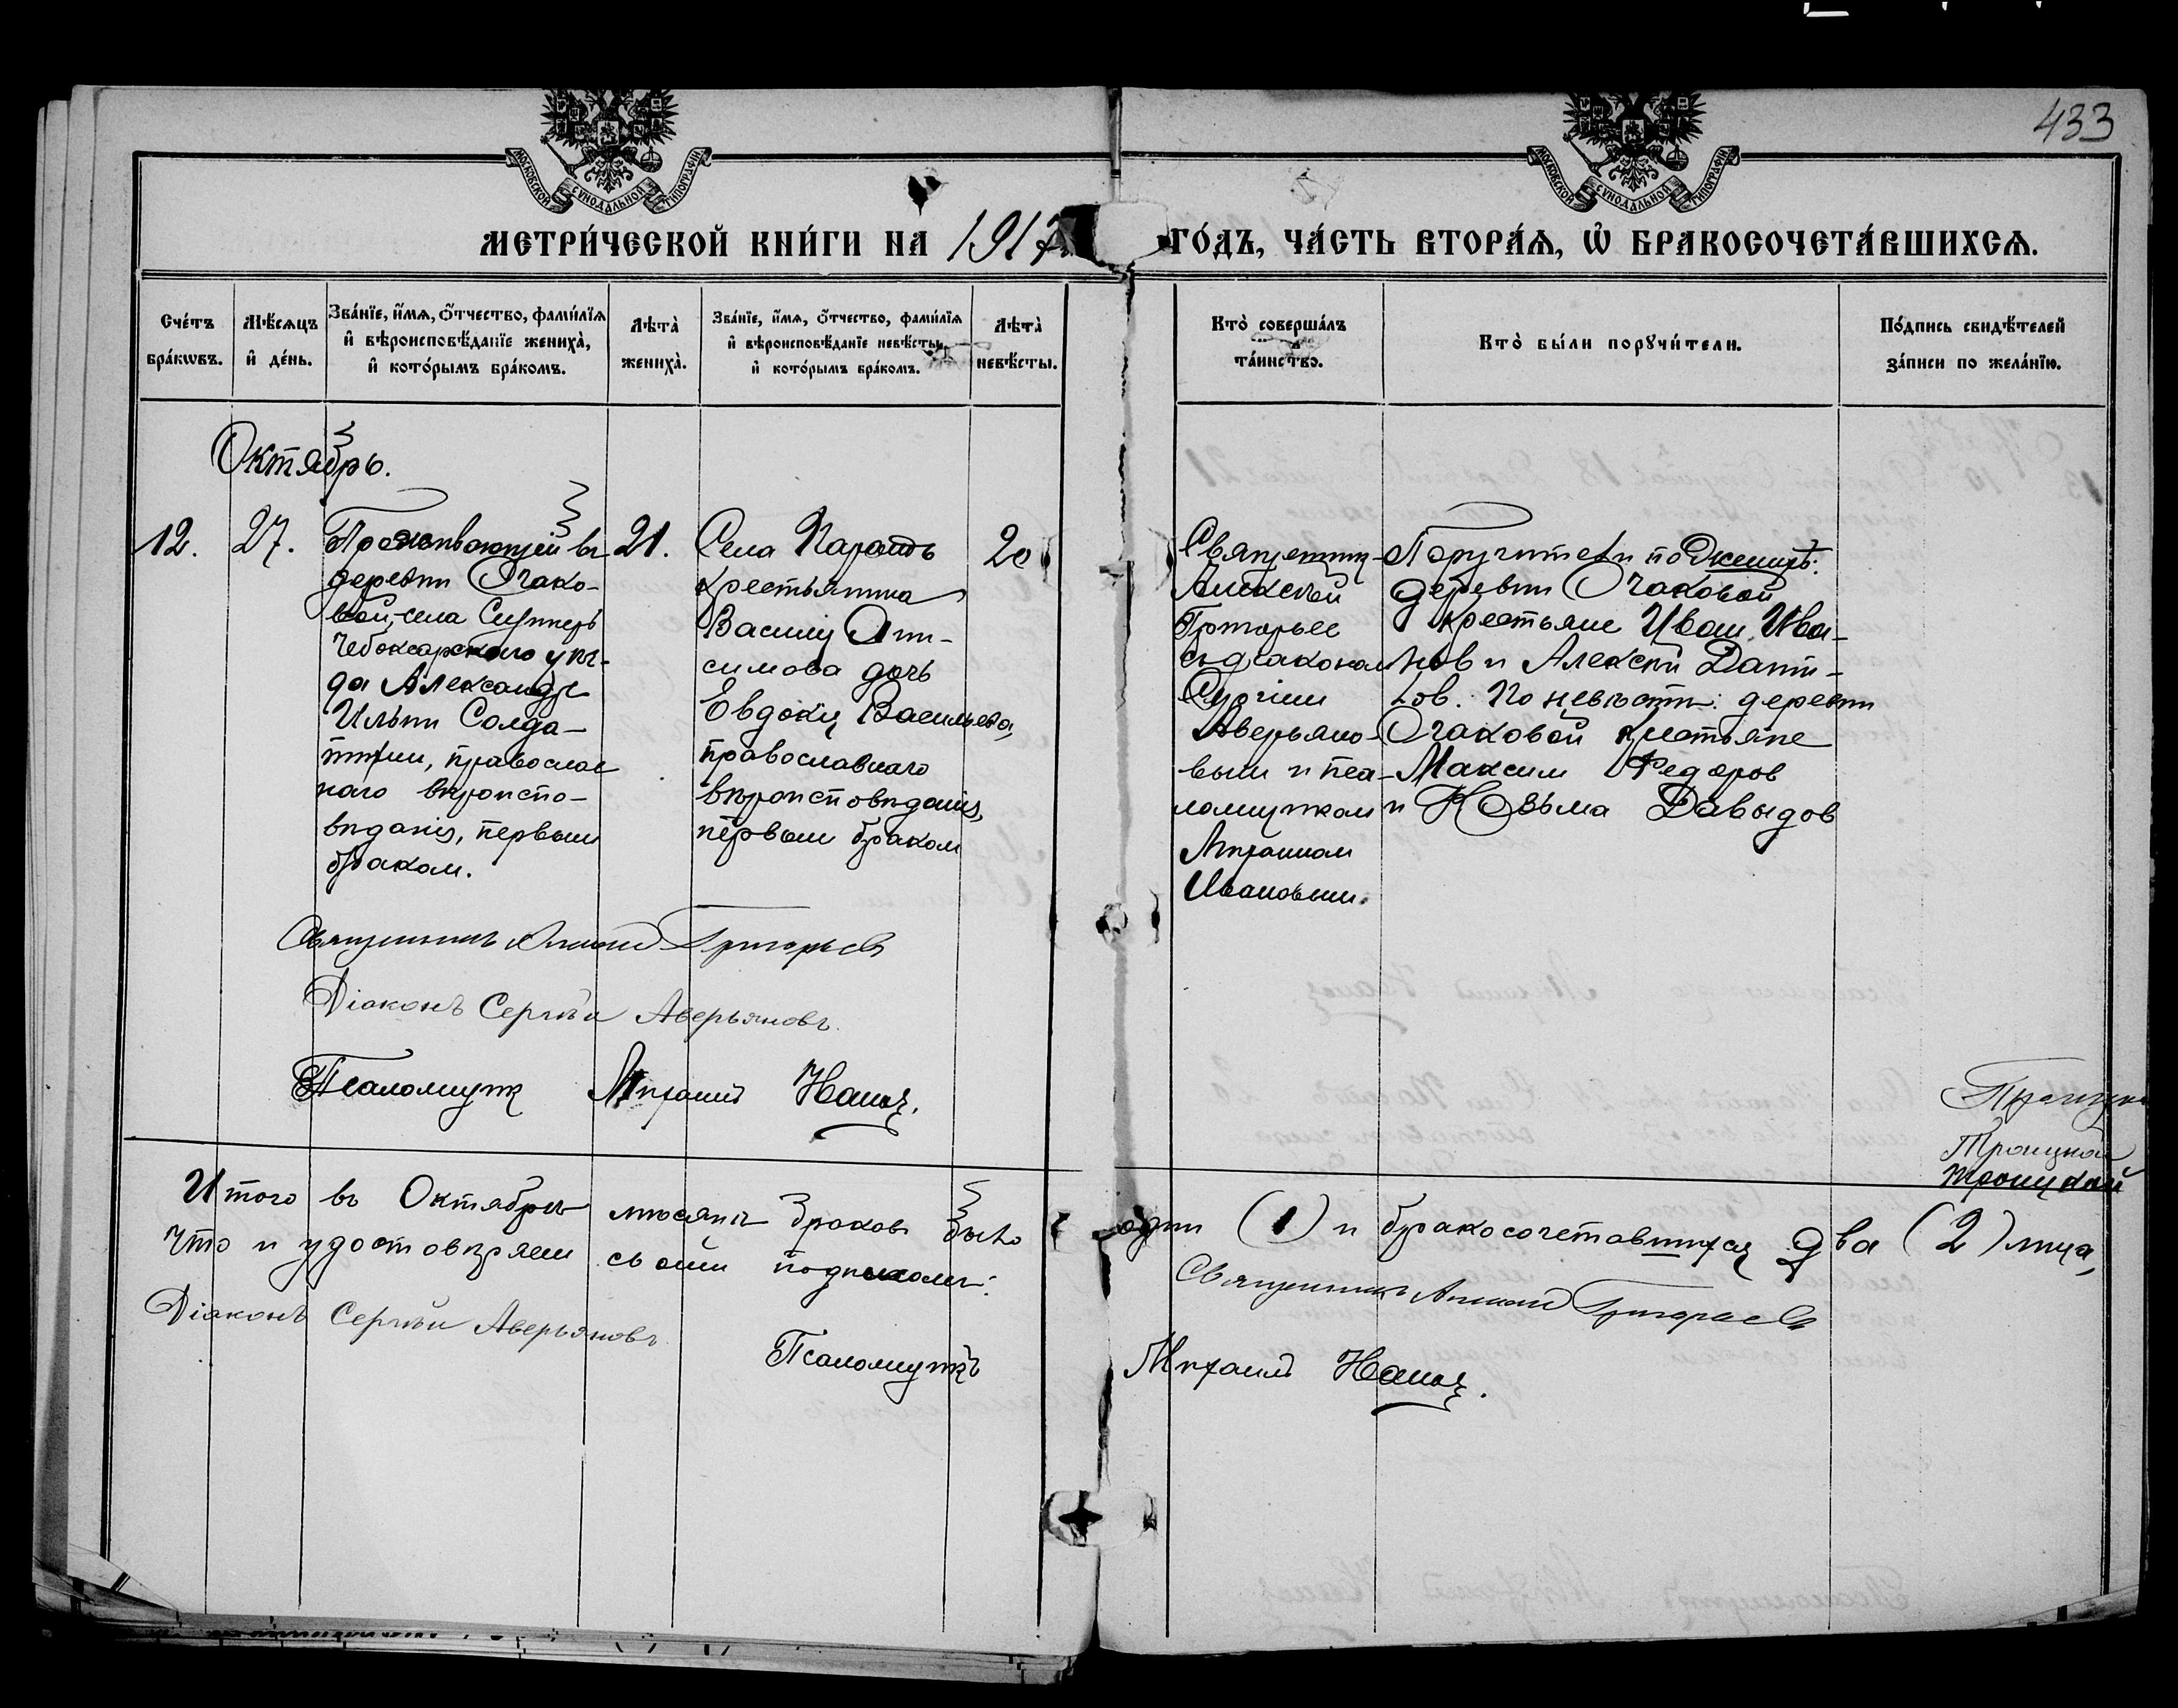 433
МОСКОВСКОЙ СѴНОДАЛЬНОЙ ТИПОГРАФІИ
МОСКОВСКОЙ СѴНОДАЛЬНОЙ ТИПОГРАФІИ
МЕТРИ́ЧЕСКОЙ КНИ́ГИ НА 1917 ГО́ДЪ, ЧА́СТЬ ВТОРА́Ѧ, Ѡ҆ БРАКОСОЧЕТА́ВШИХСѦ.
Сче́тъ бра́кѡвъ.
Мѣ́сѧцъ и҆ де́нь.
Зва́нїе, и҆́мѧ, ѻ҆́тчество, фами́лїѧ
и҆ вѣроисповѣ́данїе жениха̀,
и҆ кото́рымъ бра́комъ.
Лѣта̀ жениха̀.
Зва́нїе, и҆́мѧ, ѻ҆́тчество, фами́лїѧ
и҆ вѣроисповѣ́данїе невѣ́сты,
и҆ кото́рымъ бра́комъ.
Лѣта̀ невѣ́сты.
Кто̀ соверша́лъ
та́инство.
Кто̀ бы́ли порꙋчи́тели.
По́дпись свидѣ́телей
за́писи по жела́нїю.
Октябрь.
12.
27.
Проживающій въ
деревни Очако-
вой, села
Чебоксарскаго уѣз-
да Александръ
Ильин Солда-
православ
наго вѣроиспо-
вѣданія, первым
браком.
21.
Села
крестьянина
Василія Ани-
симова дочь
Евдокія Васильева,
православнаго
вѣроисповѣданія,
первым браком
20
Священник
Алексѣй
Григорьев
съ діаконом
Сергіем
Аверьяно-
вым и пса-
ломщиком
Михаилом
Ивановым.
Поручители по женихѣ:
деревни Очаковой
крестьяне Иван Ива-
нов и Алексѣй Дани-
лов. По невѣстѣ: деревни
Очаковой крестьяне
Максим Федоров
и Козьма Давыдов
Священникъ Алексѣй Григорьевъ
Діаконъ Сергѣй Аверьяновъ.
Псаломщик Михаил Иванов.
Троицкой
Троицкой
Итого въ Октябрѣ мѣсяцѣ браков было один (1) и бракосочетавшихся два (2) лица,
что и удостовѣряем своим подписом:
Священникъ Алексѣй Григорьевъ
Діаконъ Сергѣй Аверьяновъ
Псаломщикъ Михаил Иванов.